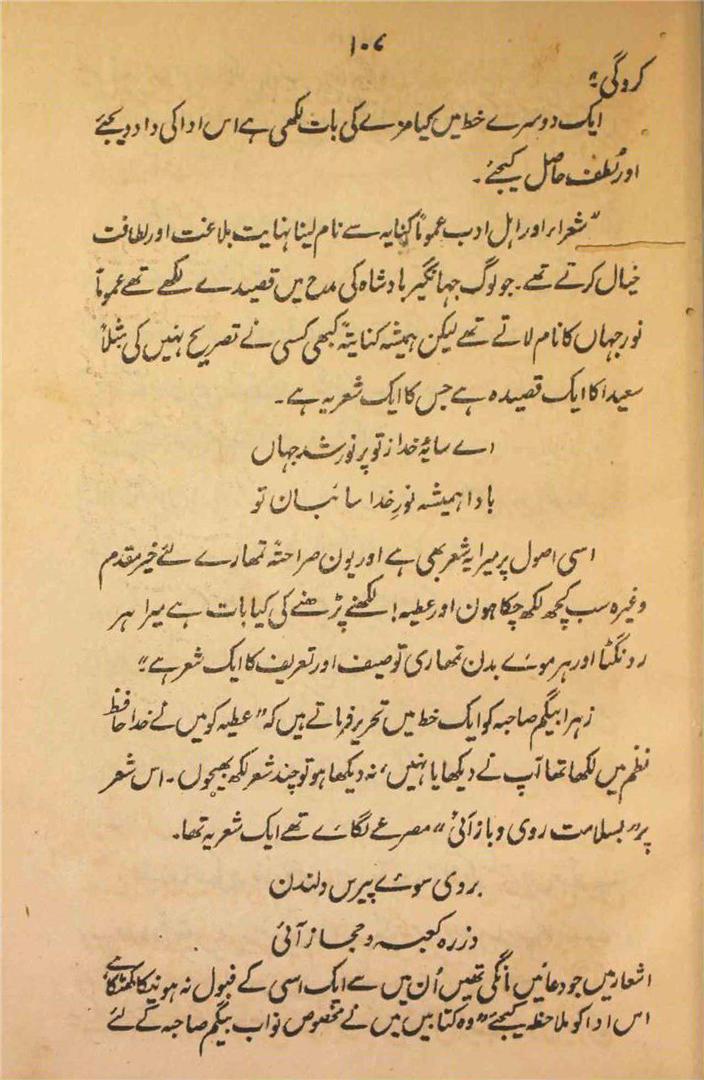 ۱۰۷
کروگی؛"
ایک دوسرے خط میں کیا مزے کی بات لکھی ہے اس ادا کی داد دیجئے
اور لُطف حاصل کیجئے۔
"شعراء اور اہل ادب عموماً کنایہ سے نام لینا نہایت بلاغت اور لطافت
خیال کرتے تھے۔ جو لوگ جہانگیر بادشاہ کی مدح میں قصیدے لکھے تھے عموماً
نورجہاں کا نام لاتے تھے لیکن ہمیشہ کنایتہً کبھی کسی نے تصریح نہیں کی مثلاً
سعیدا کا ایک قصیدہ ہے جس کا ایک شعر یہ ہے۔
اے سایۂ خدا ز تو پر نور شد جہاں
بادا ہمیشہ نورِ خدا سائبان تو
اسی اصول پر میرا یہ شعر بھی ہے اور یوں صراحتہً تمھارے لئے خیر مقدم
وغیرہ سب کچھ لکھ چکا ہون اور عطیہ! لکھنے پڑھنے کی کیا بات ہے میرا ہر
رونگٹا اور ہر موے بدن تمھاری توصیف اور تعریف کا ایک شعر ہے"
زہرا بیگم صاحبہ کو ایک خط میں تحریر فرماتے ہیں کہ "عطیہ کو میں نے خدا حافظ
نظم میں لکھا تھا آپ نے دیکھا یا نہیں، نہ دیکھا ہو تو چند شعر لکھ بھیجوں۔ اس شعر
پر "بسلامت روی و باز آئی" مصرعے لگائے تھے ایک شعر یہ تھا۔
بروی سوے پیرس و لندن
وز رہ کعبہ و حجاز آئی
اشعار میں جو دعائیں مانگی تھیں اُن میں سے ایک اسی کے قبول نہ ہونیکا کھٹکا ہے
اس ادا کو ملاحظہ کیجئے "وہ کتابیں میں نے مخصوص نواب بیگم صاحبہ کے لئے